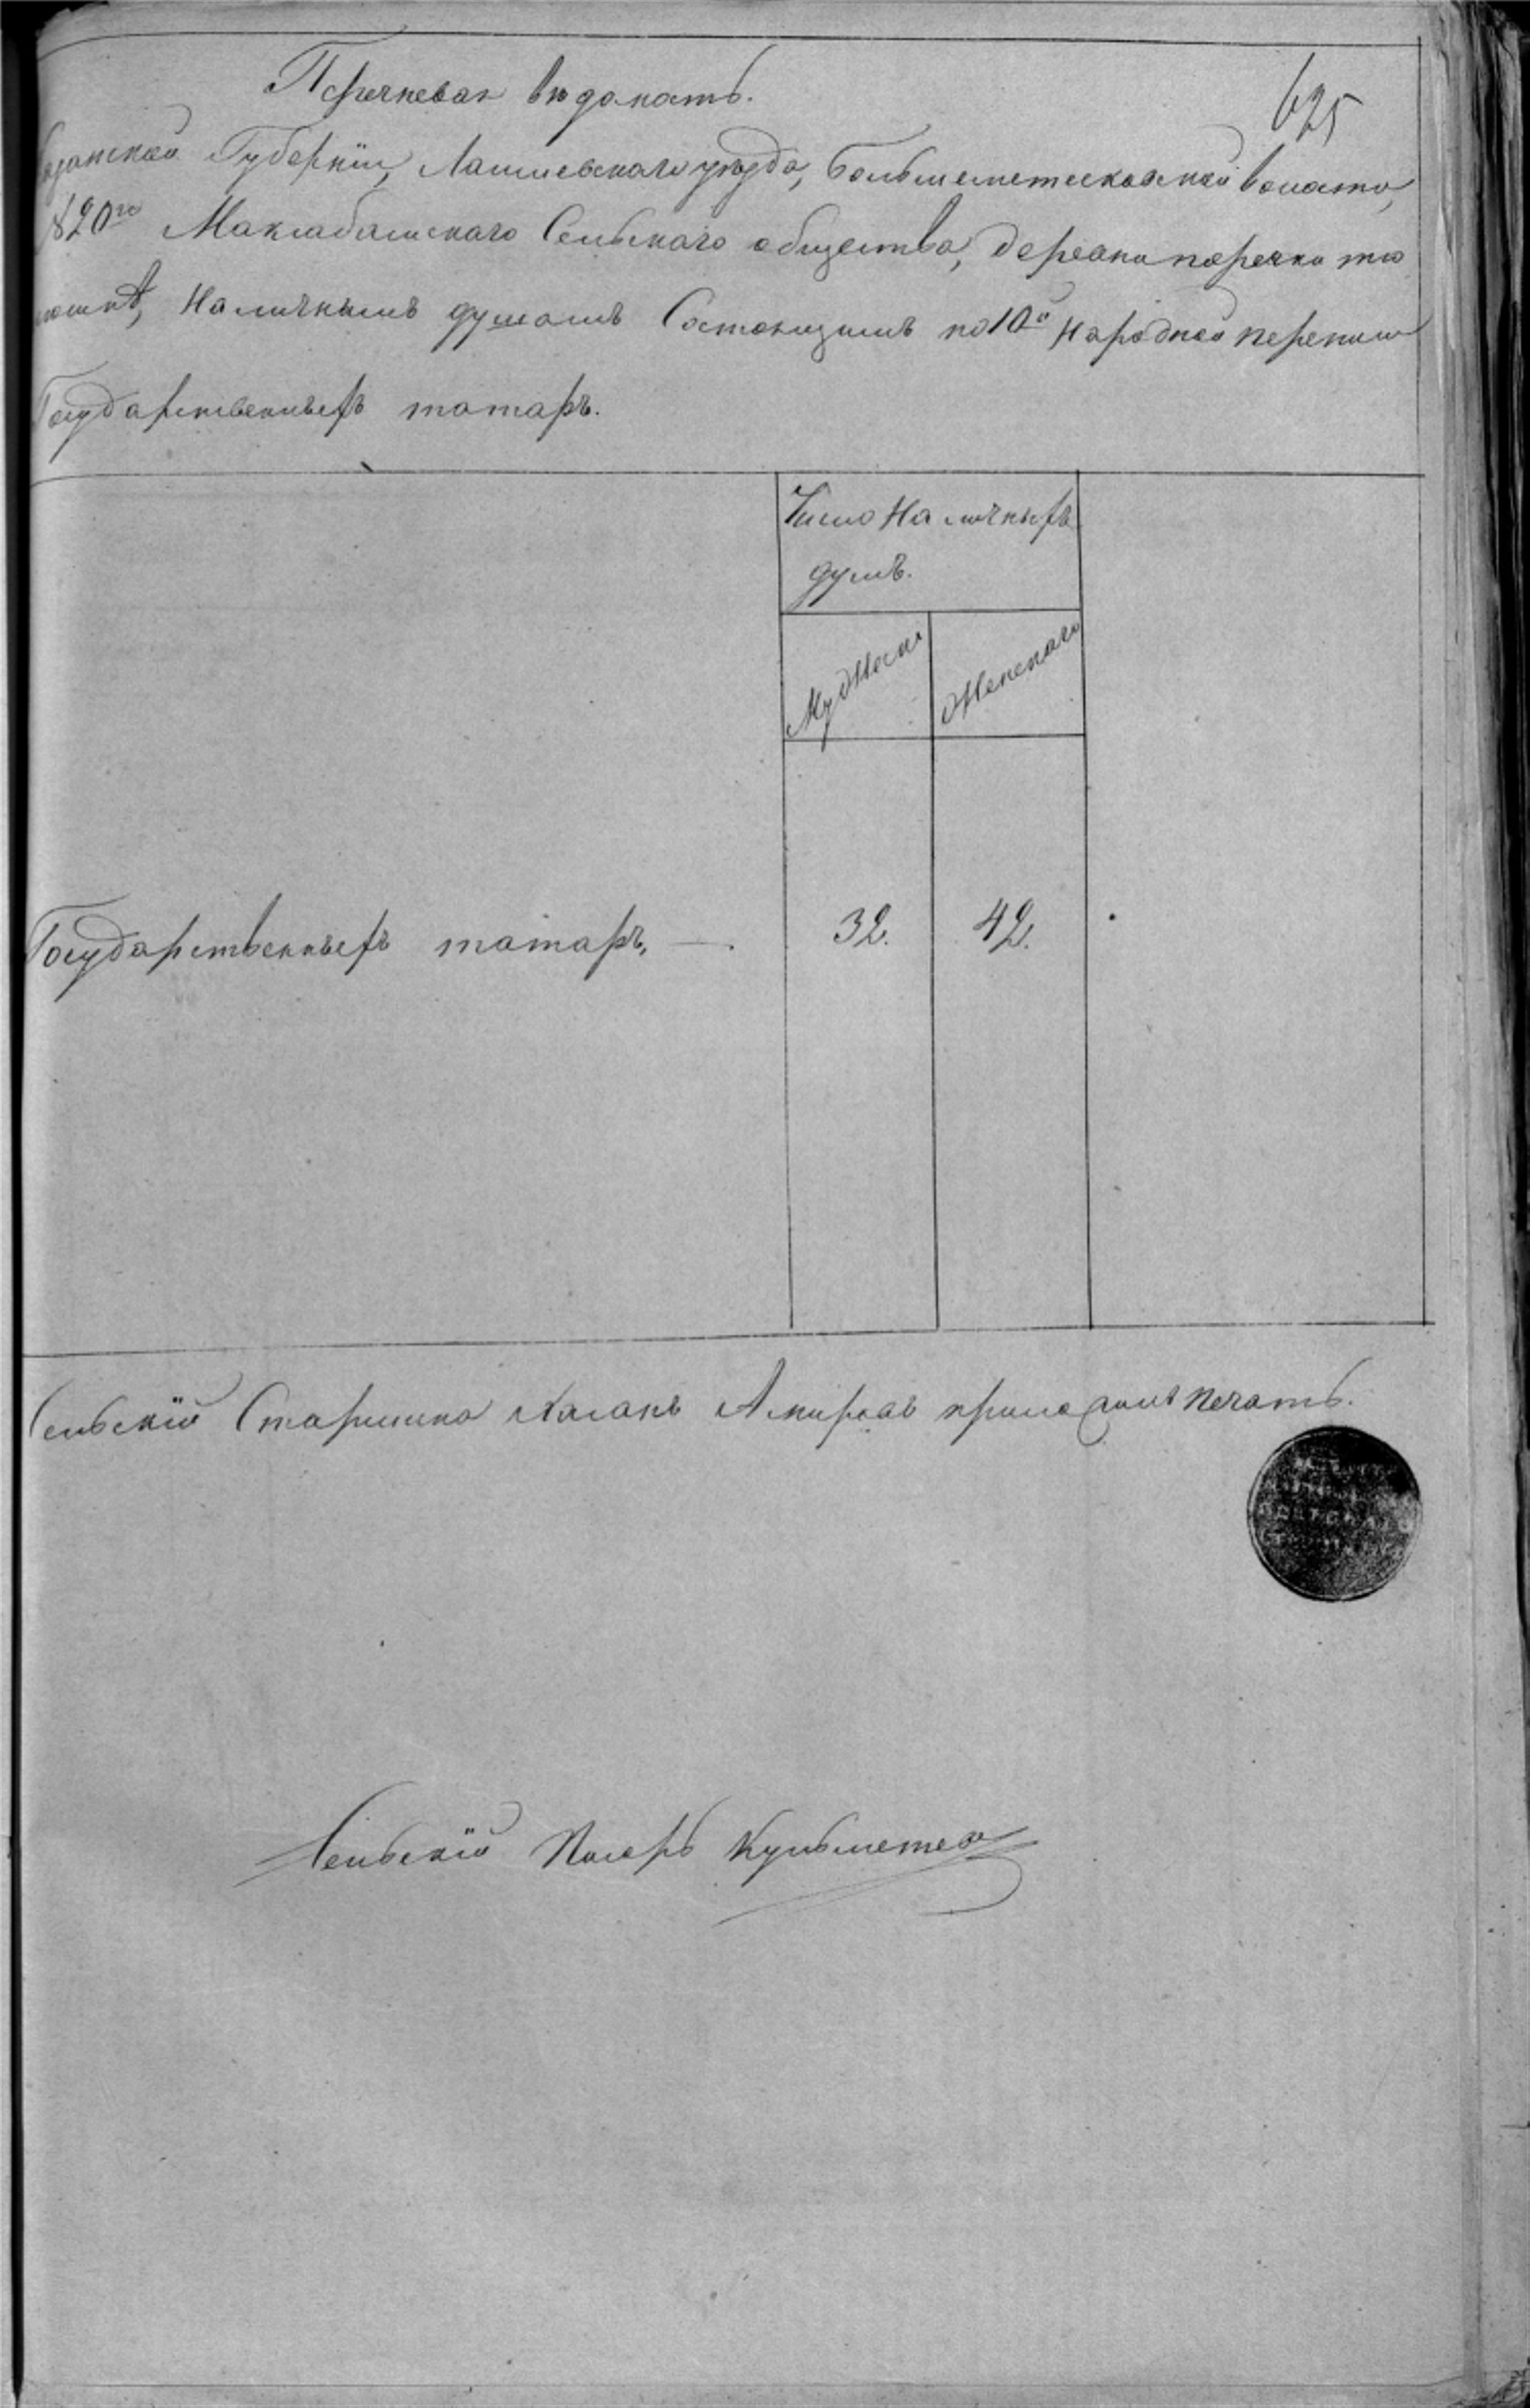 Перечневая ведомость.
625
Казанской Губерніи, Лаишевскаго уѣзда, Большеметескинской волости,
№20го Маклабашскаго Сельскаго общества, деревни поречки тю
наличнымъ душамъ Состоящимъ по 10й народной переписи
Государственныхъ татаръ.
Число Наличныхъ
душъ.
Мужска Женскаго
Государственныхъ татаръ, — . 32. 42.
Сельскій Старшина Амировъ приложилъ печать.
Сельскій Писарь Кульметев